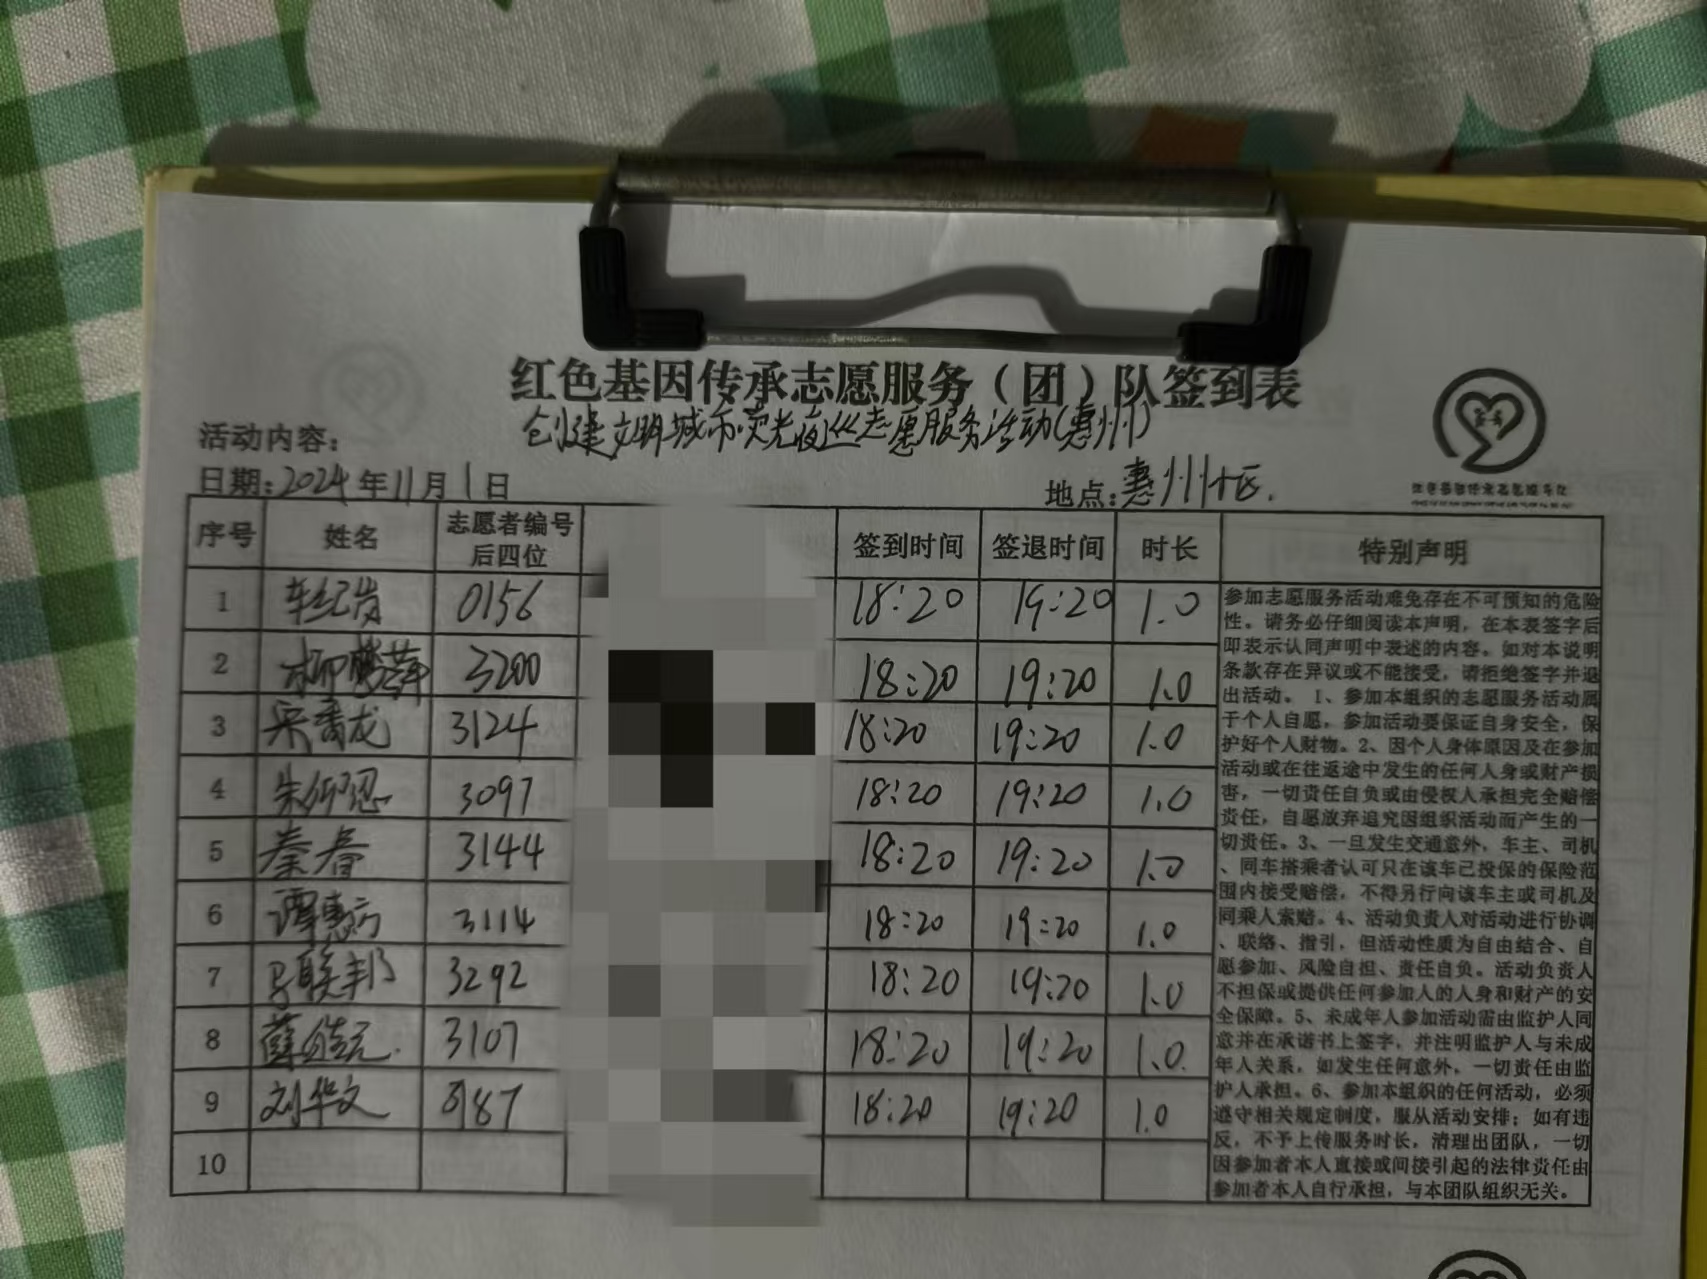 红色基因传承志愿服务（团）队签到表
活动内容： 创建文明城市荧光夜巡志愿服务活动(惠州)
日期:2024年11月1日 地点:惠州市区.
序号 姓名 志愿者编号后四位 签到时间 签退时间 时长 特别声明
1 0156 18:20 19:20 1.0
2 柳 萍 3200 18:20 19:20 1.0
3 龙 3124 18:20 19:20 1.0
4 朱仰恩 3097 18:20 19:20 1.0
5 秦春 3144 18:20 19:20 1.0
6 谭惠方 3114 18:20 19:20 1.0
7 马联邦 3292 18:20 19:20 1.0
8 薛 元 3107 18:20 19:20 1.0
9 刘华文 187 18:20 19:20 1.0
10
参加志愿服务活动难免存在不可预知的危险
性。请务必仔细阅读本声明，在本表签字后
即表示认同声明中表述的内容。如对本说明
条款存在异议或不能接受，请拒绝签字并退
出活动。 1、参加本组织的志愿服务活动属
于个人自愿，参加活动要保证自身安全，保
护好个人财物。2、因个人身体原因及在参加
活动或在往返途中发生的任何人身或财产损
害，一切责任自负或由侵权人承担完全赔偿
责任，自愿放弃追究因组织活动而产生的一
切责任。3、一旦发生交通意外，车主、司机
、同车搭乘者认可只在该车已投保的保险范
围内接受赔偿，不得另行向该车主或司机及
同乘人索赔。4、活动负责人对活动进行协调
、联络、指引，但活动性质为自由结合、自
愿参加、风险自担、责任自负。活动负责人
不担保或提供任何参加人的人身和财产的安
全保障。5、未成年人参加活动需由监护人同
意并在承诺书上签字，并注明监护人与未成
年人关系，如发生任何意外，一切责任由监
护人承担。6、参加本组织的任何活动，必须
遵守相关规定制度，服从活动安排；如有违
反，不予上传服务时长，清理出团队，一切
因参加者本人直接或间接引起的法律责任由
参加者本人自行承担，与本团队组织无关。